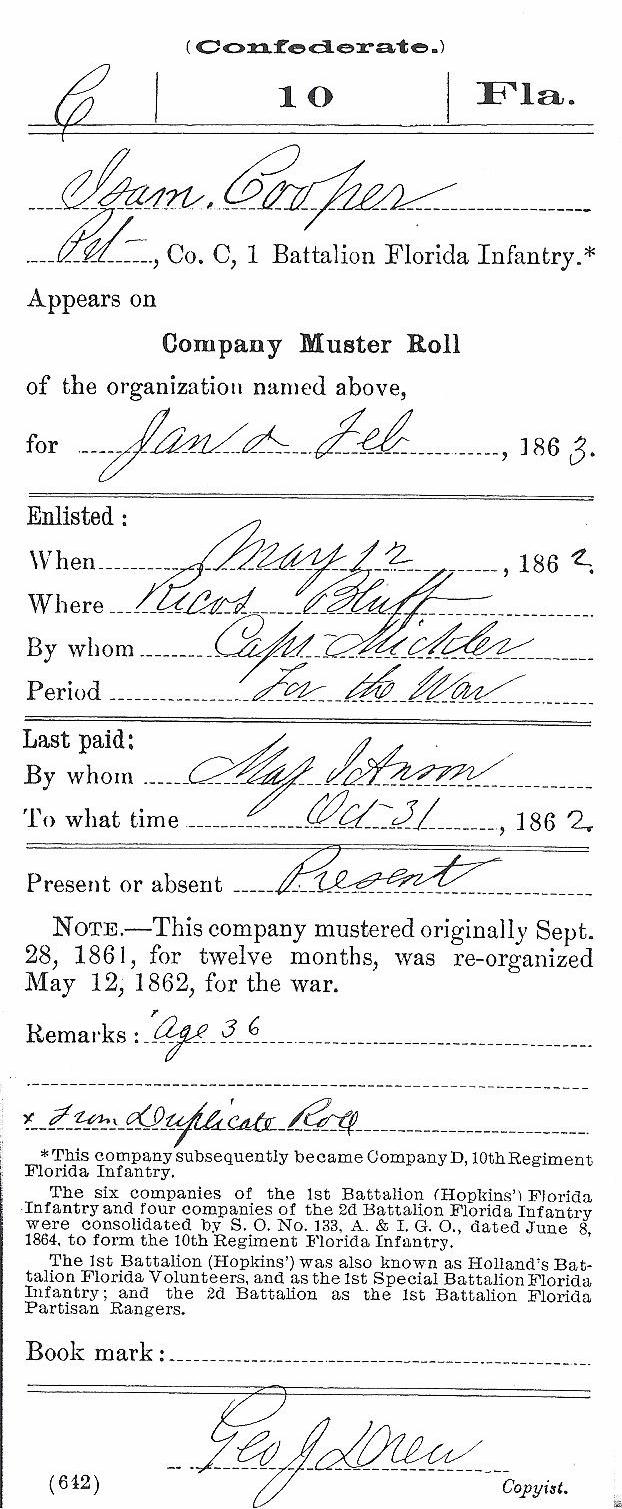 (Confederate.)
C | 10 | Fla.
Isam. Cooper
Pvt, Co. C, 1 Battalion Florida Infantry.*
Appears on
Company Muster Roll
of the organization named above,
for Jan & Feb, 1863.
Enlisted:
When May 12, 1862.
Where Ricos Bluff
By whom Capt Mickler
Period For the War
Last paid:
By whom Maj
To what time Oct 31, 1862.
Present or absent Present
NOTE.—This company mustered originally Sept.
28, 1861, for twelve months, was re-organized
May 12, 1862, for the war.
Remarks: Age 36
x From Duplicate Roll
*This company subsequently became Company D, 10th Regiment
Florida Infantry.
The six companies of the 1st Battalion (Hopkins') Florida
Infantry and four companies of the 2d Battalion Florida Infantry
were consolidated by S. O. No. 133, A. & I. G. O., dated June 8,
1864, to form the 10th Regiment Florida Infantry.
The 1st Battalion (Hopkins') was also known as Holland's Bat-
talion Florida Volunteers, and as the 1st Special Battalion Florida
Infantry; and the 2d Battalion as the 1st Battalion Florida
Partisan Rangers.
Book mark:
Geo J Drew
(642) Copyist.